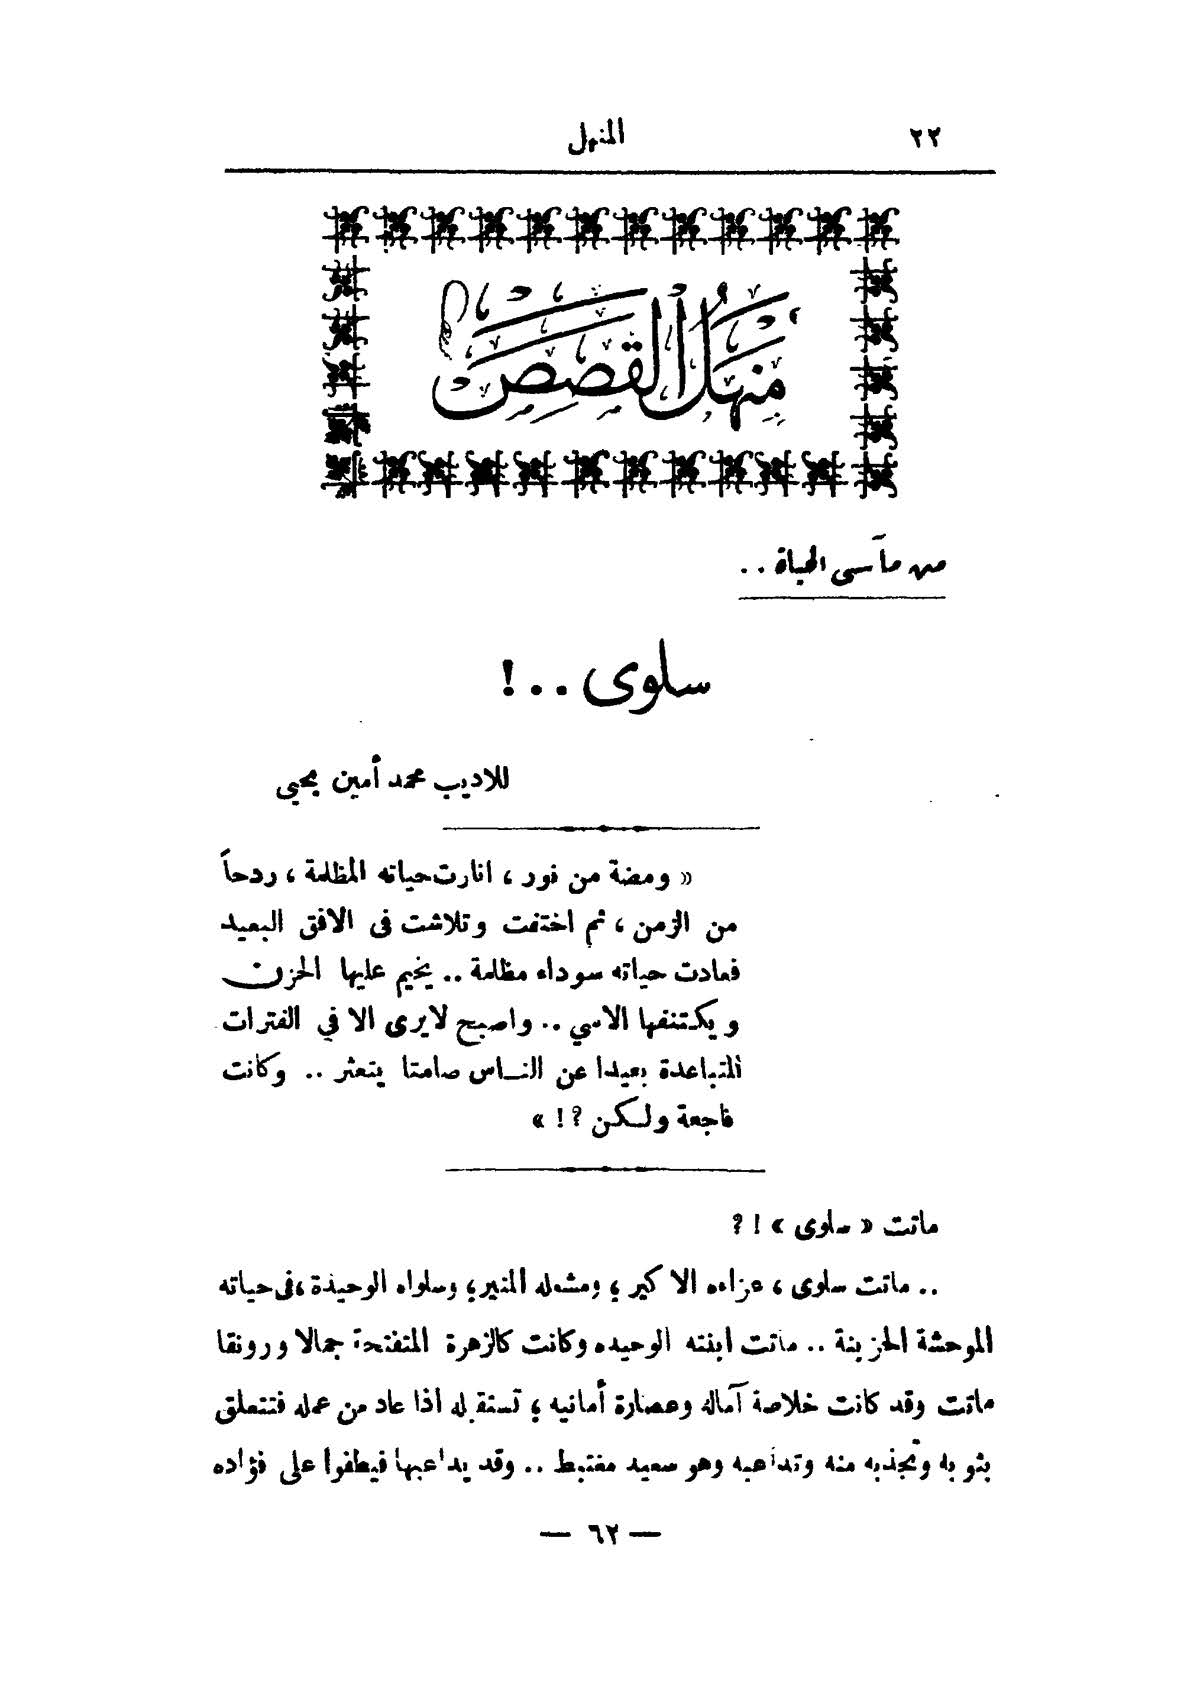 ٢٢
المنهل
مَنهَلُ القَصَص
من مآسى الحياة ..
سلوى ..!
للاديب محمد أمين يحيى
« ومضة من نور ، انارت حياته المظلمة ، ردحاً
من الزمن ، ثم اختفت وتلاشت فى الافق البعيد
فعادت حياته سوداء مظلمة .. يخيم عليها الحزن
ويكتنفها الاسي .. واصبح لايرى الا في الفترات
المتباعدة بعيدا عن النـاس صامتا يتعثر .. وكانت
فاجعة ولـكن ?! »
ماتت « سلوى » ! ?
.. ماتت سلوى ، عزاءه الاكبر ؛ ومشعله المنير؛ وسلواه الوحيدة ،فى حياته
الموحشة الحزينة .. ماتت ابنته الوحيده وكانت كالزهرة المتفتحة جمالا ورونقا
ماتت وقد كانت خلاصة آماله وعصارة أمانيه ؛ تستقبله اذا عاد من عمله فتتعلق
بثوبه وتجذبه منه وتداعبه وهو سعيد مغتبط .. وقد يداعبها فيطفوا على فؤاده
— ٦٢ —